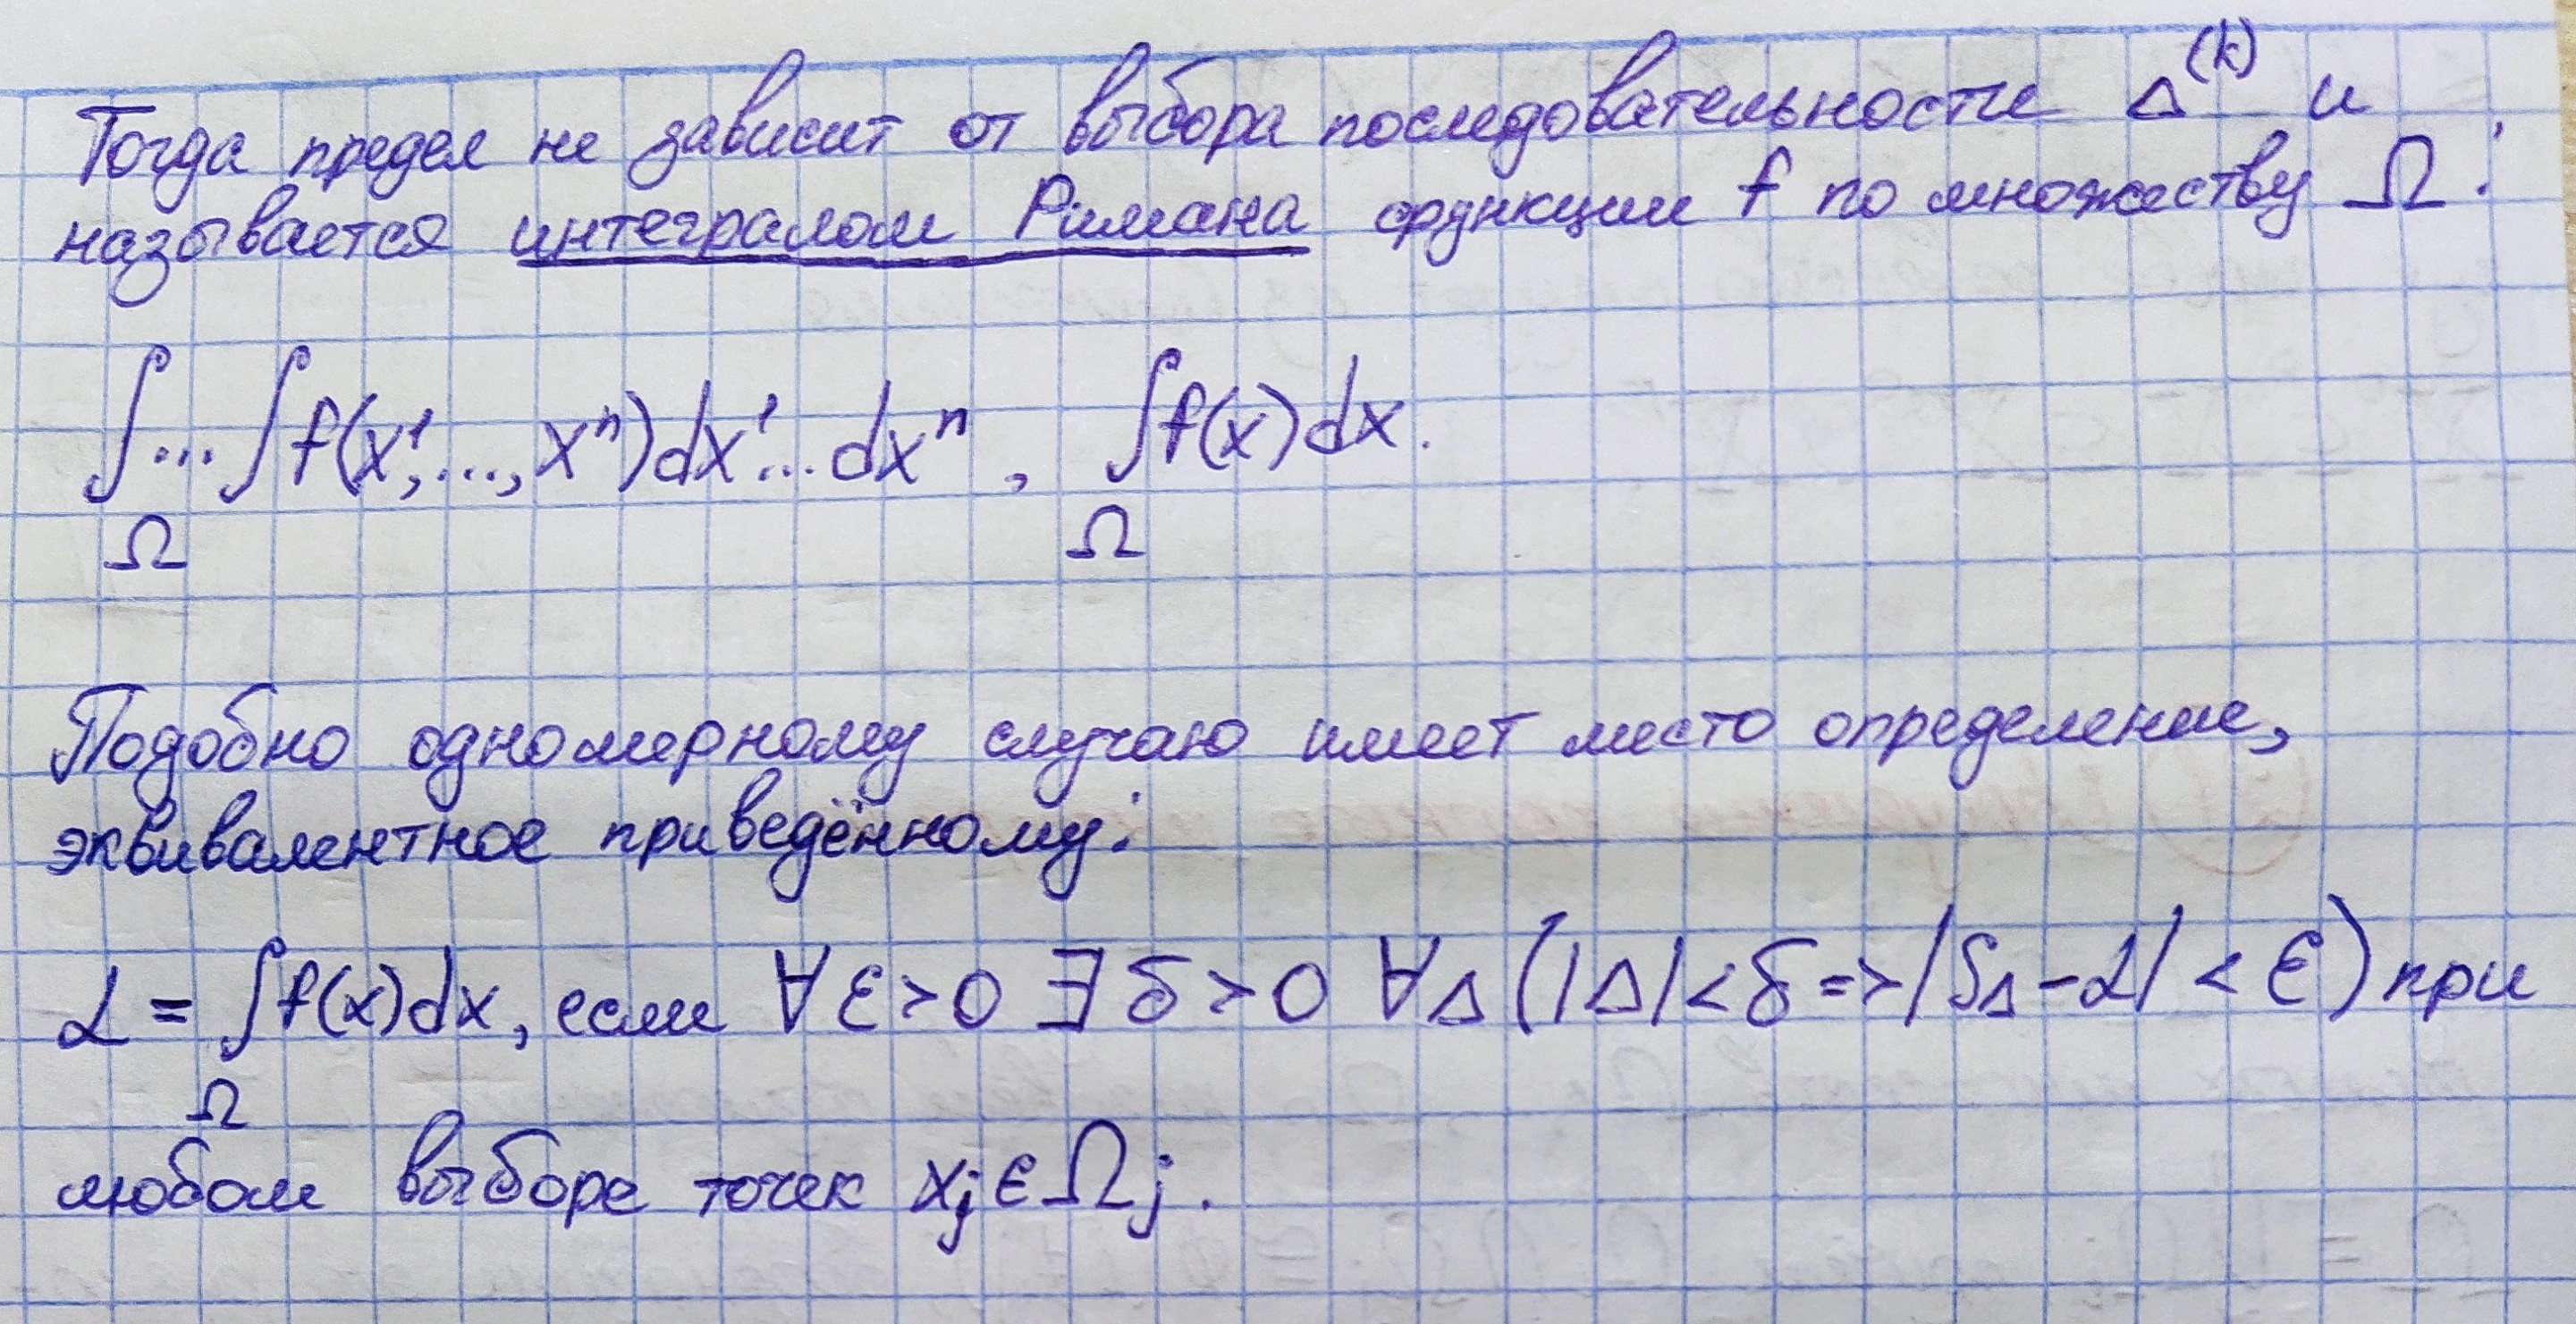 Тогда предел не зависит от выбора последовательности Δ⁽ᵏ⁾ и
называется интегралом Римана функции f по множеству Ω:
∫...∫ f(x¹,...,xⁿ)dx¹...dxⁿ, ∫f(x)dx.
Ω Ω
Подобно одномерному случаю имеет место определение,
эквивалентное приведённому:
L = ∫f(x)dx, если ∀ε>0 ∃δ>0 ∀Δ(|Δ|<δ=>|S_Δ-L|<ε) при
Ω
любом выборе точек x_j∈Ω_j.